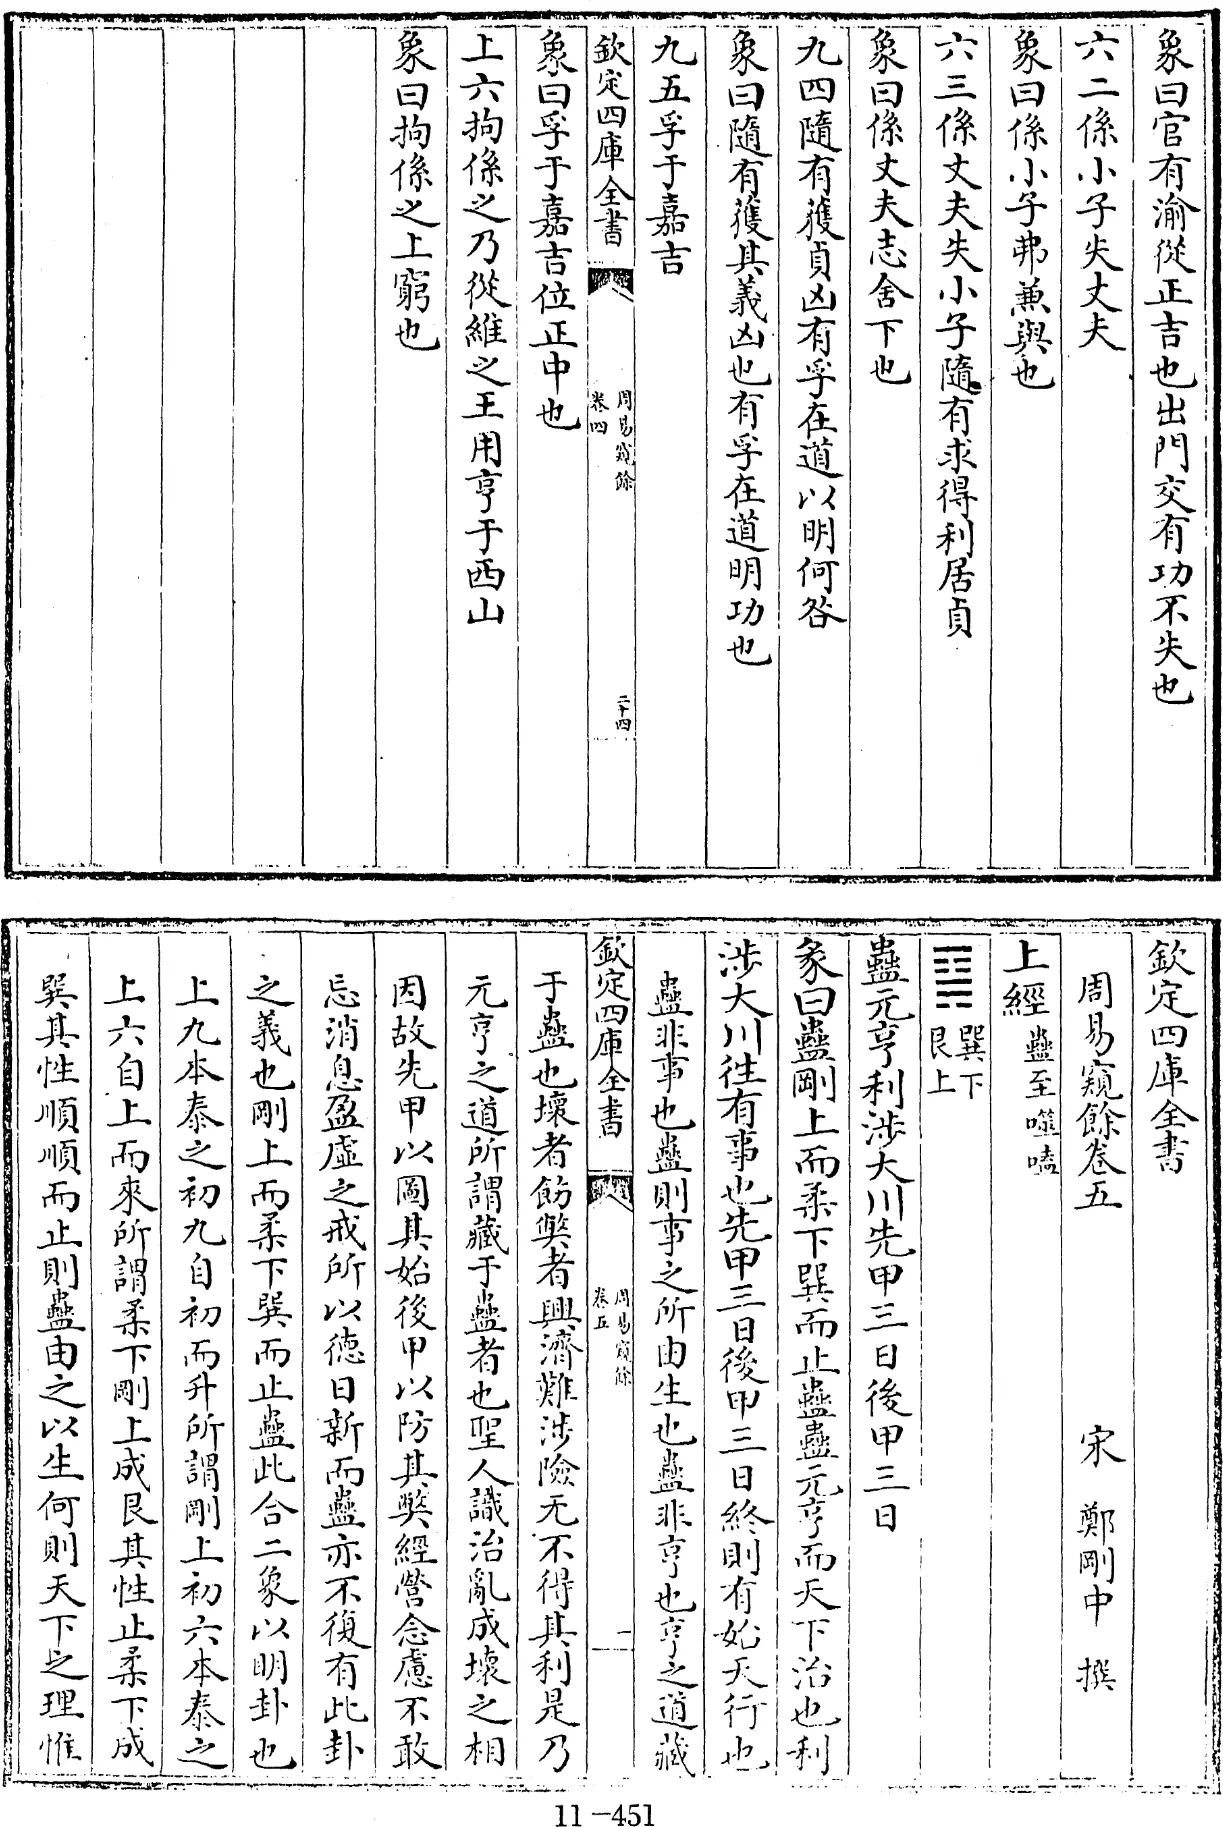 象曰官有渝從正吉也出門交有功不失也
六二係小子失丈夫
象曰係小子弗兼與也
六三係丈夫失小子隨有求得利居貞
象曰係丈夫志舍下也
九四隨有獲貞凶有孚在道以明何咎
象曰隨有獲其義凶也有孚在道明功也
九五孚于嘉吉
欽定四庫全書
周易窺餘
卷四
二十四
象曰孚于嘉吉位正中也
上六拘係之乃從維之王用亨于西山
象曰拘係之上窮也
欽定四庫全書
周易窺餘卷五
宋 鄭剛中 撰
上經 蠱至噬嗑
巽下
艮上
蠱元亨利涉大川先甲三日後甲三日
彖曰蠱剛上而柔下巽而止蠱蠱元亨而天下治也利
涉大川往有事也先甲三日後甲三日終則有始天行也
蠱非事也蠱則事之所由生也蠱非亨也亨之道藏
欽定四庫全書
周易窺餘
卷五
一
于蠱也壞者飭獘者興濟難涉險无不得其利是乃
元亨之道所謂藏于蠱者也聖人識治亂成壞之相
因故先甲以圖其始後甲以防其獘經營念慮不敢
忘消息盈虛之戒所以德日新而蠱亦不復有此卦
之義也剛上而柔下巽而止蠱此合二象以明卦也
上九本泰之初九自初而升所謂剛上初六本泰之
上六自上而來所謂柔下剛上成艮其性止柔下成
巽其性順順而止則蠱由之以生何則天下之理惟
11-451